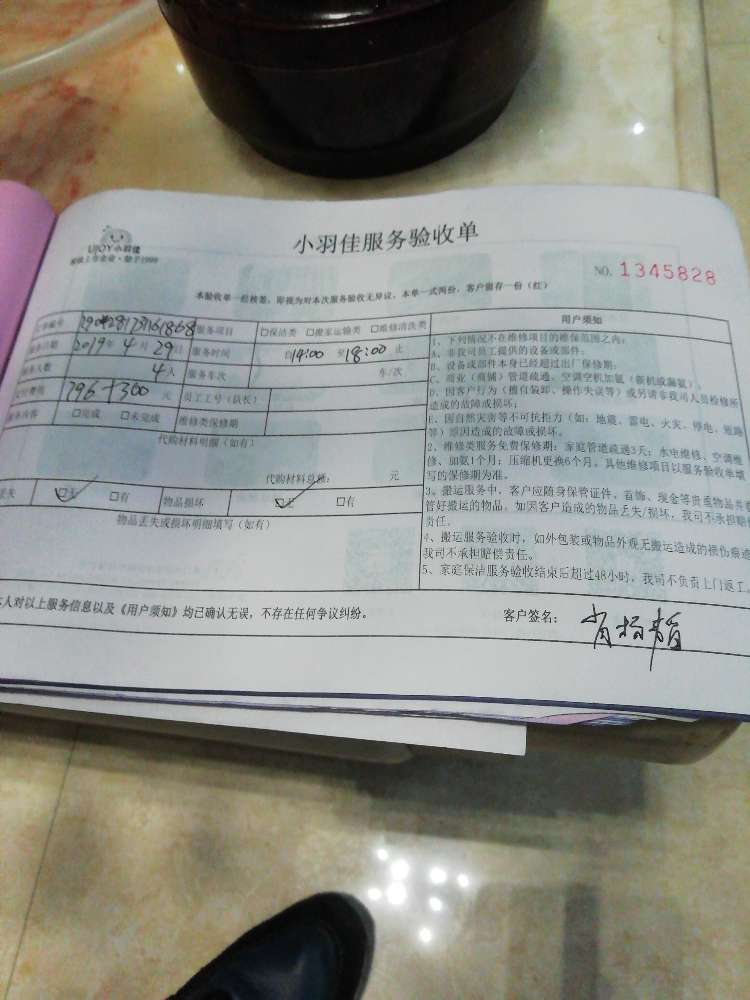 UJOY小羽佳
小羽佳服务验收单
NO. 1345828
本验收单一经核签，即视为对本次服务验收无异议，本单一式两份，客户留存一份（红）
编号 服务项目 □保洁类 □搬家运输类 □维修清洗类
服务日期 2019年 4月 29日 服务时间 自14:00 至18:00 止
人数 4人 服务车次 车/次
796+300 元 员工工号（队长）
□完成 □未完成 维修类保修期
代购材料明细（如有）
代购材料总额： 元
丢失 □无 □有 物品损坏 □无 □有
物品丢失或损坏明细填写（如有）
用户须知
1、下列情况不在维修项目的维保范围之内：
A、非我司员工提供的设备或部件；
B、设备或部件本身已经超过出厂保修期；
C、商业（商铺）管道疏通，空调空机加氟（新机或漏氟）
D、因客户行为（擅自装卸、操作失误等）或另请非我司人员检修所
造成的故障或损坏；
E、因自然灾害等不可抗拒力（如：地震、雷电、火灾、停电、短路
等）原因造成的故障或损坏。
2、维修类服务免费保修期：家庭管道疏通3天；水电维修、空调维
修、加氟1个月；压缩机更换6个月。其他维修项目以服务验收单填
写的保修期为准。
3、搬运服务中，客户应随身保管证件、首饰、现金等贵重物品并
管好搬运的物品，如因客户造成的物品丢失/损坏，我司不承担赔偿
责任。
4、搬运服务验收时，如外包装或物品外观无搬运造成的损伤痕迹
我司不承担赔偿责任。
5、家庭保洁服务验收结束后超过48小时，我司不负责上门返工
本人对以上服务信息以及《用户须知》均已确认无误，不存在任何争议纠纷。
客户签名：